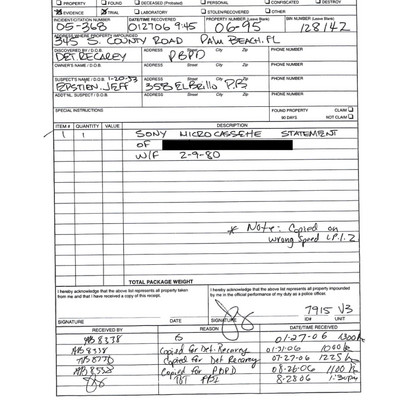 PROPERTY FOUND DECEASED (Probated) PERSONAL CONFISCATED DESTROY
EVIDENCE TRIAL LABORATORY STOLEN/RECOVERED OTHER
INCIDENT/CITATION NUMBER DATE/TIME RECOVERED PROPERTY (Leave Blank) BIN NUMBER (Leave Blank)
05-368 012706 9:45 06-95 128142
ADDRESS WHERE PROPERTY IMPOUNDED Street City Zip
345 S. COUNTY ROAD PALM BEACH, FL
DISCOVERED BY / D.O.B. ADDRESS Street City Zip PHONE NUMBER
DET RECAREY PBPD
OWNER'S NAME / D.O.B. ADDRESS Street City Zip PHONE NUMBER
SUSPECT'S NAME / D.O.B. 1-20-53 ADDRESS Street City Zip PHONE NUMBER
EPSTIEN, JEFF 358 El Brillo P.B.
ADD'TNL SUSPECT / D.O.B. ADDRESS Street City Zip PHONE NUMBER
SPECIAL INSTRUCTIONS FOUND PROPERTY CLAIM
90 DAYS NOT CLAIM
ITEM # QUANTITY VALUE DESCRIPTION
1 1 SONY MICROCASSETTE STATEMENT
OF
W/F 2-9-80
* Note: Copied on
wrong speed
TOTAL PACKAGE WEIGHT
I hereby acknowledge that the above list represents all property taken
from me and that I have received a copy of this receipt.
I hereby acknowledge that the above list represents all property impounded
by me in the official performance of my duty as a police officer.
7915 V3
SIGNATURE DATE SIGNATURE ID# UNIT
RECEIVED BY REASON DATE/TIME RECEIVED
8338 01-27-06 1300
8338 Copied for Det. Recarey 01-31-06 1000
Copied for Det Recarey 07-27-06 1225
Copied for PBPD 08-26-06 1100
8-28-06 1:30pm